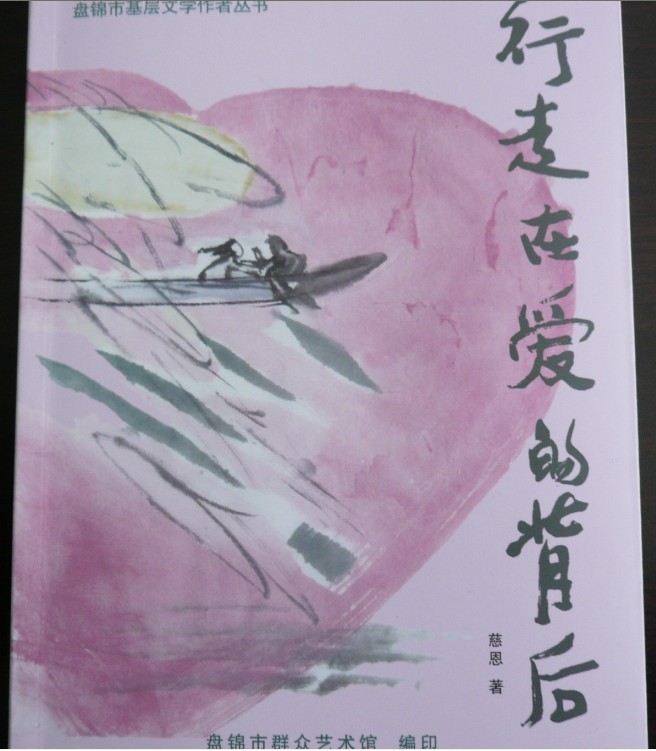 盘锦市基层文学作者丛书
行走在爱的背后
慈恩 著
盘锦市群众艺术馆 编印